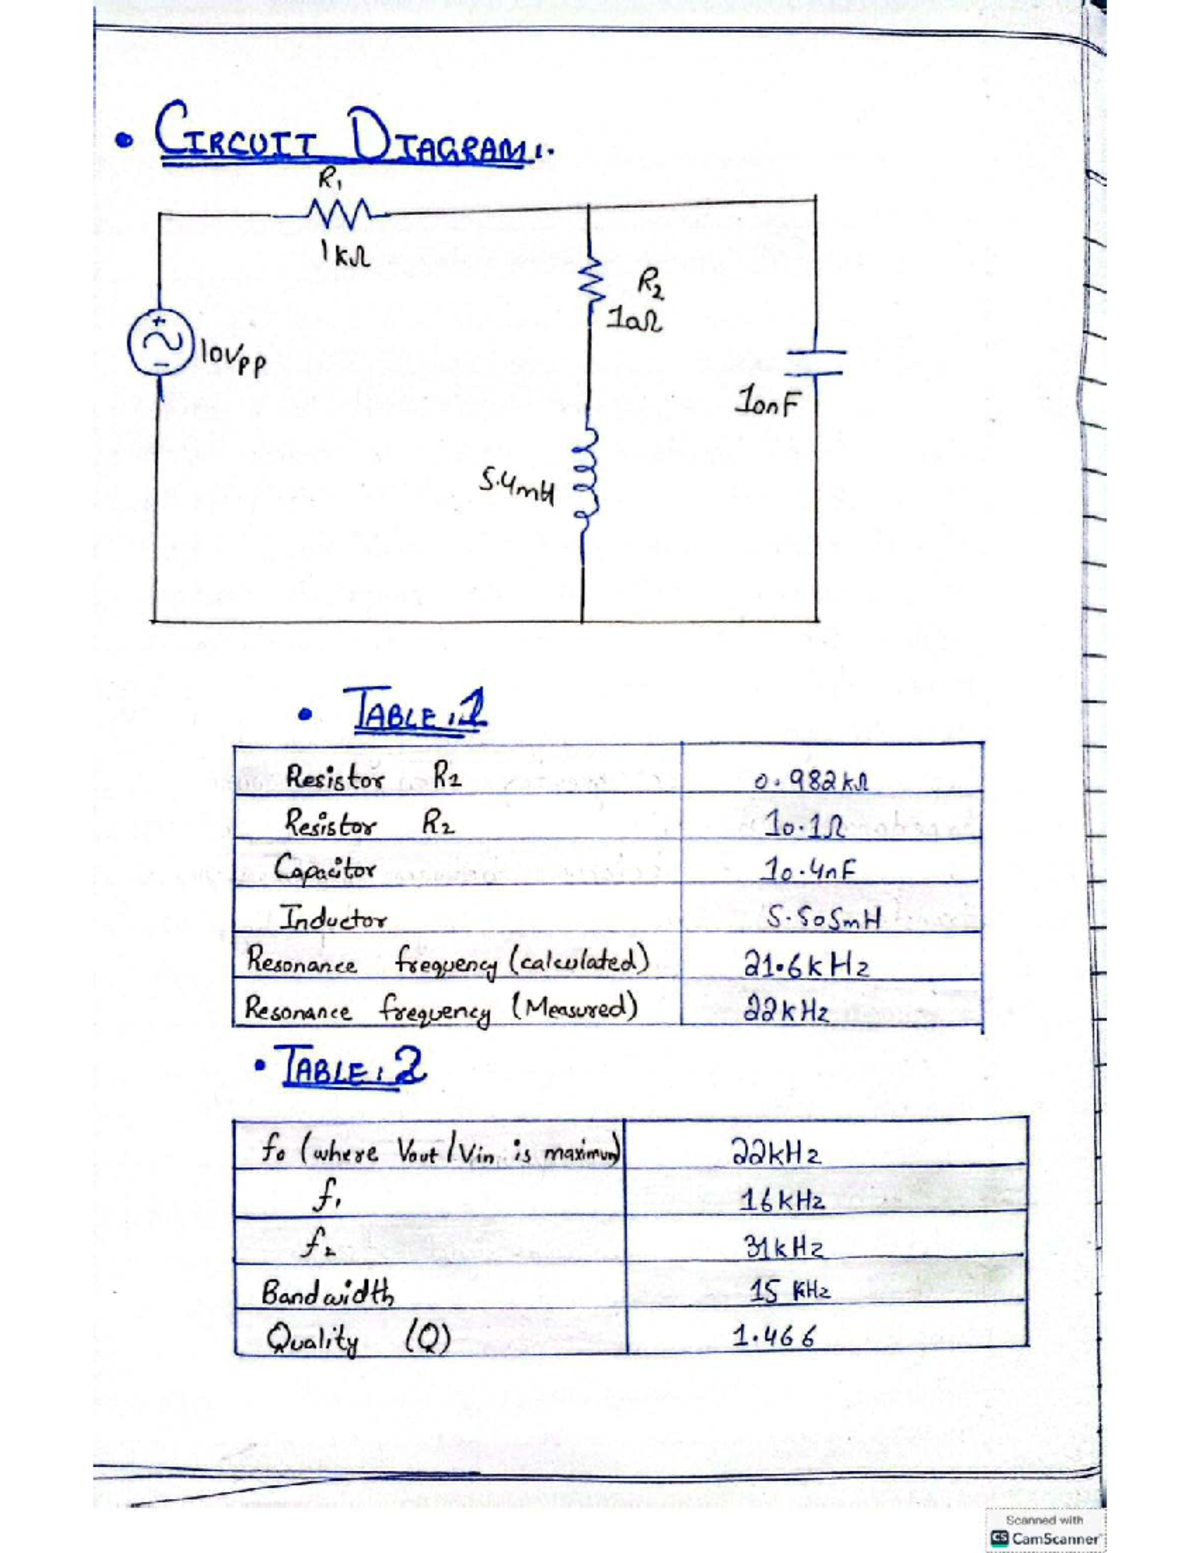 • CIRCUIT DIAGRAM:.
R₁
1kΩ
R₂
10Ω
10Vpp
10nF
5.4mH
• TABLE:1
Resistor R1 0.982kΩ
Resistor R2 10.1Ω
Capacitor 10.4nF
Inductor 5.505mH
Resonance frequency (calculated) 21.6kHz
Resonance frequency (Measured) 22kHz
• TABLE:2
fo (where Vout/Vin is maximum) 22kHz
f₁ 16kHz
f₂ 31kHz
Bandwidth 15 KHz
Quality (Q) 1.466
Scanned with
CS CamScanner